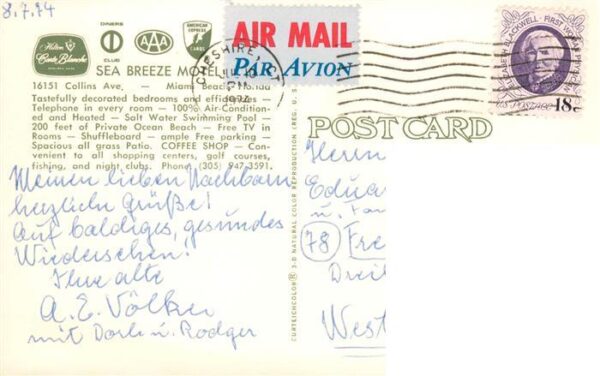 8.7.74
Hilton
Carte Blanche
DINERS
CLUB
AAA
AMERICAN
EXPRESS
CARDS
AIR MAIL
PAR AVION
CHESHIRE, CT
1974
ELIZABETH BLACKWELL · FIRST WOMAN PHYSICIAN
U.S. POSTAGE 18c
SEA BREEZE MOTEL
16151 Collins Ave, — Miami Beach, Florida
Tastefully decorated bedrooms and efficiencies —
Telephone in every room — 100% Air-Condition-
ed and Heated — Salt Water Swimming Pool —
200 feet of Private Ocean Beach — Free TV in
Rooms — Shuffleboard — ample Free parking —
Spacious all grass Patio. COFFEE SHOP — Con-
venient to all shopping centers, golf courses,
fishing, and night clubs. Phone (305) 947-3591.
Meinen lieben Nachbarn
herzliche Grüße!
Auf baldiges, gesundes
Wiedersehen!
Ihre alte
A. E. Völker
mit Dorle u. Rodger
CURTEICHCOLOR® 3-D NATURAL COLOR REPRODUCTION (REG. U.S.
POST CARD
Herrn
Edua
u. Fam
(78) Fre
Drei
West